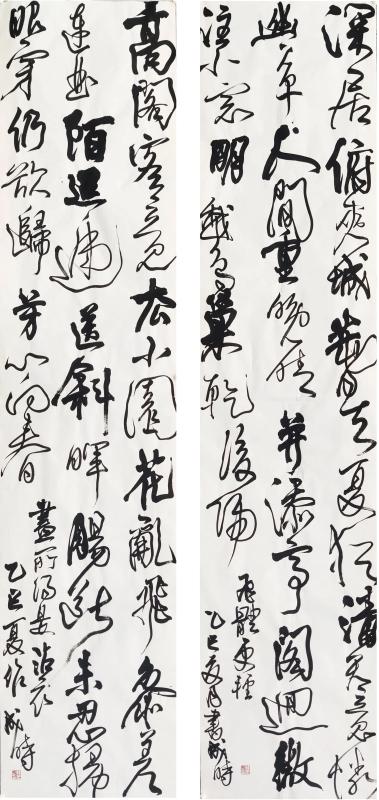 深居俯夾城春去夏猶清天意憐
幽草人間重晚晴並添高閣迥微
注小窗明越鳥巢乾後歸
飛體更輕
乙巳夏月書成時
高閣客竟去小園花亂飛參差
連曲陌迢遞送斜暉腸斷未忍掃
眼穿仍欲歸芳心向春
盡所得是沾衣
乙巳夏作成時